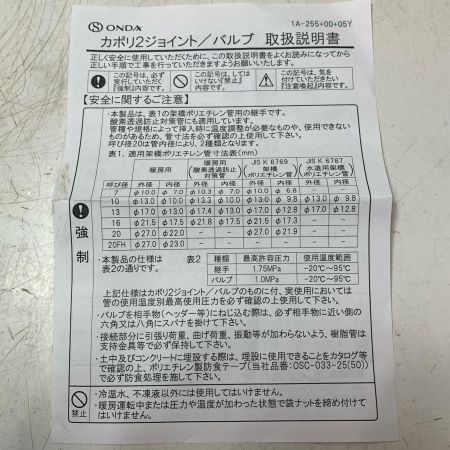 ONDA
1A-255+00+05Y
カポリ2ジョイント/バルブ 取扱説明書
正しく安全に使用していただくために、この取扱説明書をよくお読みになってから
正しい手順で工事を行っていただきますようお願いいたします。
この記号は、必ず実行していただく『強制』内容です。
この記号は、してはいけない『禁止』内容です。
この記号は、気を付けていただきたい『注意喚起』内容です。
【安全に関するご注意】
強制
・本製品は、表1の架橋ポリエチレン管用の継手です。
酸素透過防止対策管にも適用しています。
管種や規格によって挿入時に温度調整が必要なものや、使用できない
ものがあるため、管寸法を必ず確認の上使用して下さい。
呼び径20は管内径により、2種類となります。
表1. 適用架橋ポリエチレン管寸法表(mm)
呼び径 暖房用 暖房用(酸素透過防止)対策管 JIS K 6769 架橋ポリエチレン管 JIS K 6787 水道用架橋ポリエチレン管
外径 内径 外径 内径 外径 内径 外径 内径
7 φ10.0 φ7.0 φ10.3 φ7.0 φ10.0 φ6.8
10 φ13.0 φ10.0 φ13.3 φ10.0 φ13.0 φ9.8 φ13.0 φ9.8
13 φ17.0 φ13.0 φ17.4 φ13.0 φ17.0 φ12.8 φ17.0 φ12.8
16 φ21.5 φ17.5 φ21.8 φ17.5 φ21.5 φ16.2
20 φ27.0 φ22.0 φ27.0 φ21.9
20FH φ27.0 φ23.0
・本製品の仕様は
表2の通りです。
表2
種類 最高許容圧力 使用温度範囲
継手 1.75MPa －20℃～95℃
バルブ 1.0MPa －20℃～95℃
上記仕様はカポリ2ジョイント/バルブのものに付、実使用においては
管の使用温度別最高使用圧力を必ず確認の上使用して下さい。
・バルブを相手物(ヘッダー等)にねじ込む際は、必ず相手物に近い側の
六角又は八角にスパナを掛けて下さい。
・接続部分に引張り荷重、曲げ荷重、振動等が加わらないよう、樹脂管は
支持金具等で必ず保持して下さい。
・土中及びコンクリートに埋設する際は、埋設に使用できることをカタログ等
で確認の上、ポリエチレン製防食テープ(当社品番:OSC-033-25(50))
で必ず防食処理を施して下さい。
禁止
・冷温水、不凍液以外には使用してはいけません。
・暖房運転中または圧力や温度が加わった状態で袋ナットを締め付けて
はいけません。